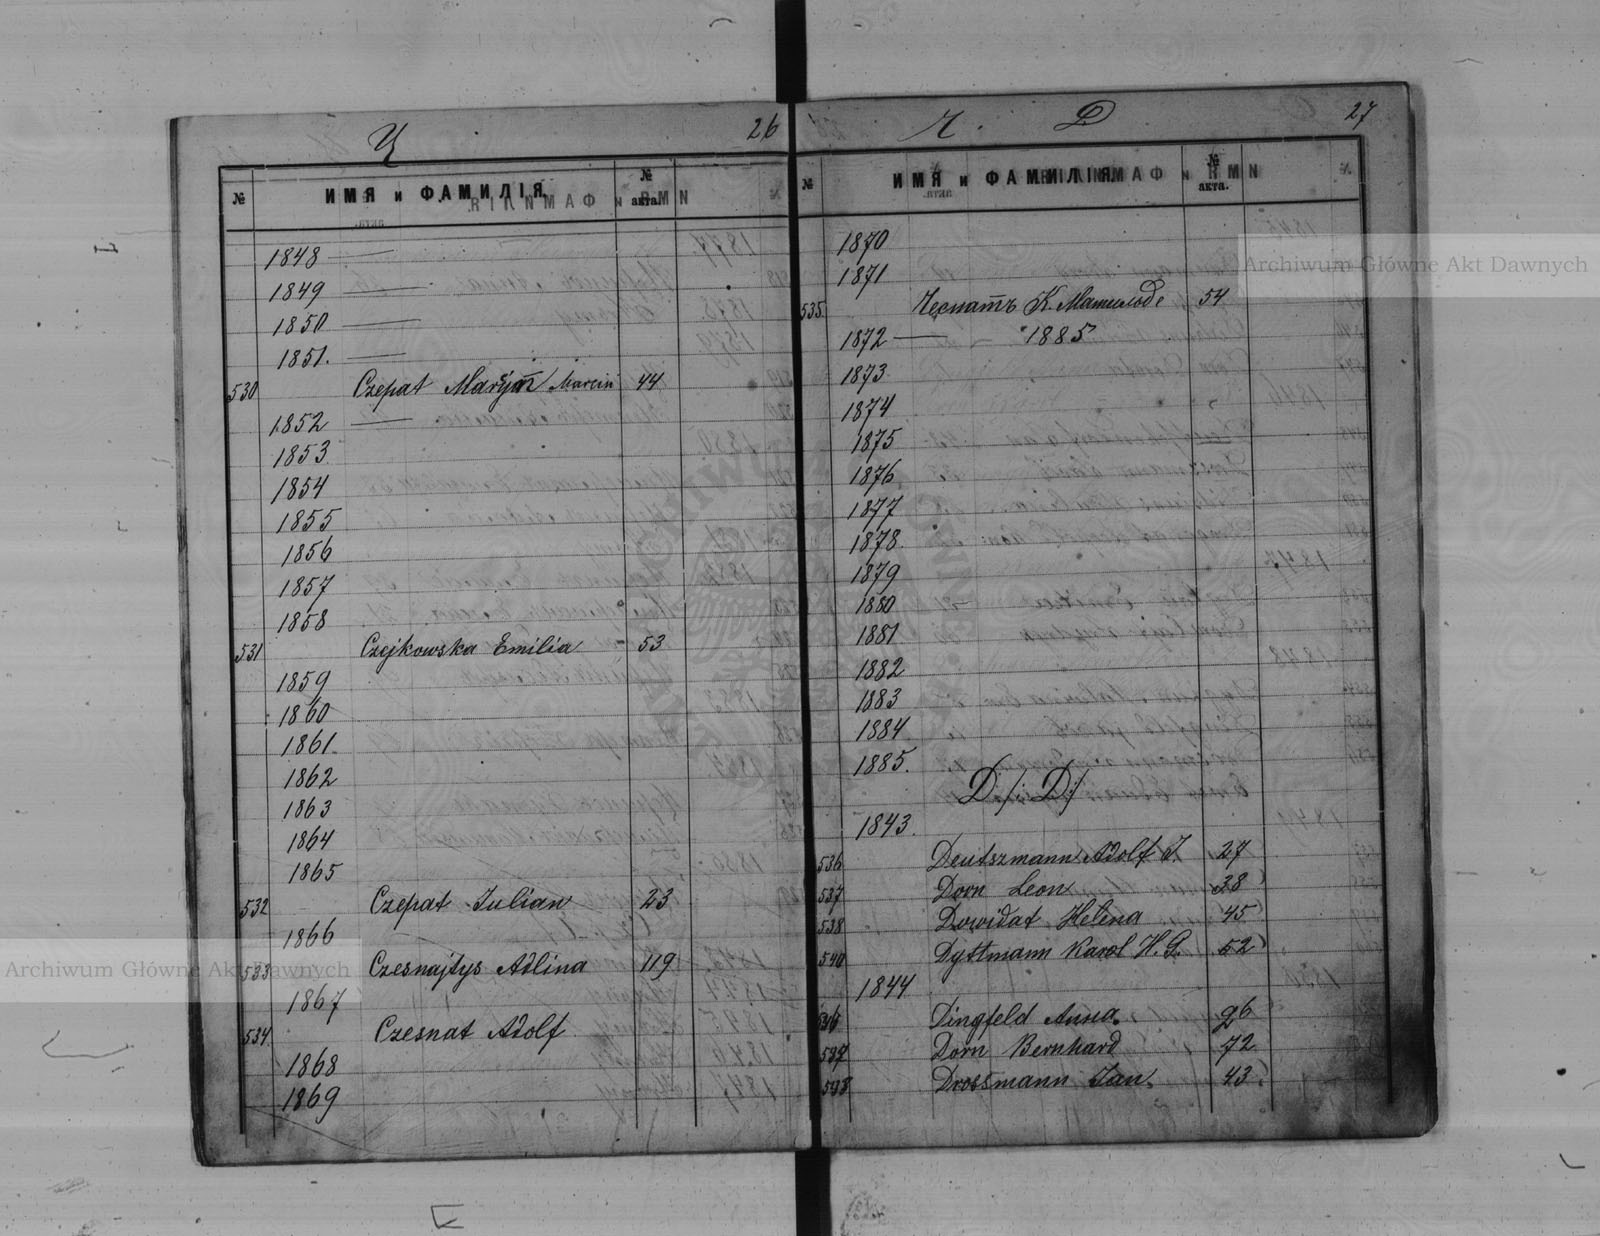 Ц 26
№ ИМЯ и ФАМИЛІЯ № акта.
1848 —
1849 —
1850 —
1851. —
530 Czepat Maryan Marcin 44
1852 —
1853
1854
1855
1856
1857
1858
531 Czejkowska Emilia - 53
1859
1860
1861.
1862
1863
1864
1865
532 Czepat Julian 23
1866
533 Czesnajtys Adlina 119
1867
534 Czesnat Adolf
1868
1869
Ч. D 27
№ ИМЯ и ФАМИЛІЯ № акта.
1870
1871
535. Чеснатъ К. Матильде 54
1872 — 1885
1873
1874
1875
1876
1877
1878.
1879
1880
1881
1882
1883
1884
1885.
D. /: D:/
1843.
536 Deutszmann Adolf J. 27
537 Dorn Leon 38
538 Dowidat Helena 45
540 Dyttmann Karol H. G. 52
1844
Dingfeld Anna. 26
537 Dorn Bernhard 72
598 Drossmann Jan. 43
Archiwum Główne Akt Dawnych
Archiwum Główne Akt Dawnych